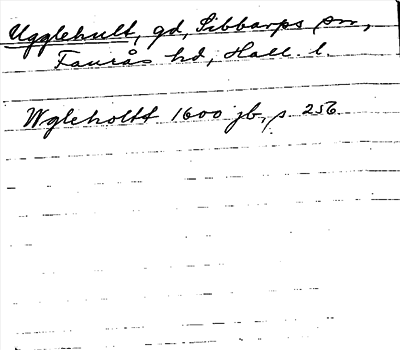 Ugglehult, gd, Sibbarps sn,
Faurås hd, Hall. l.
Wgleholtt 1600 jb, s. 256